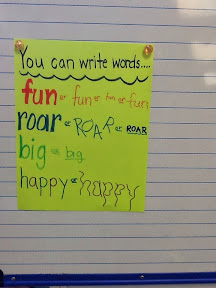 You can write words....
fun or fun or fun or fun
roar or ROAR or ROAR
big or big
happy or happy